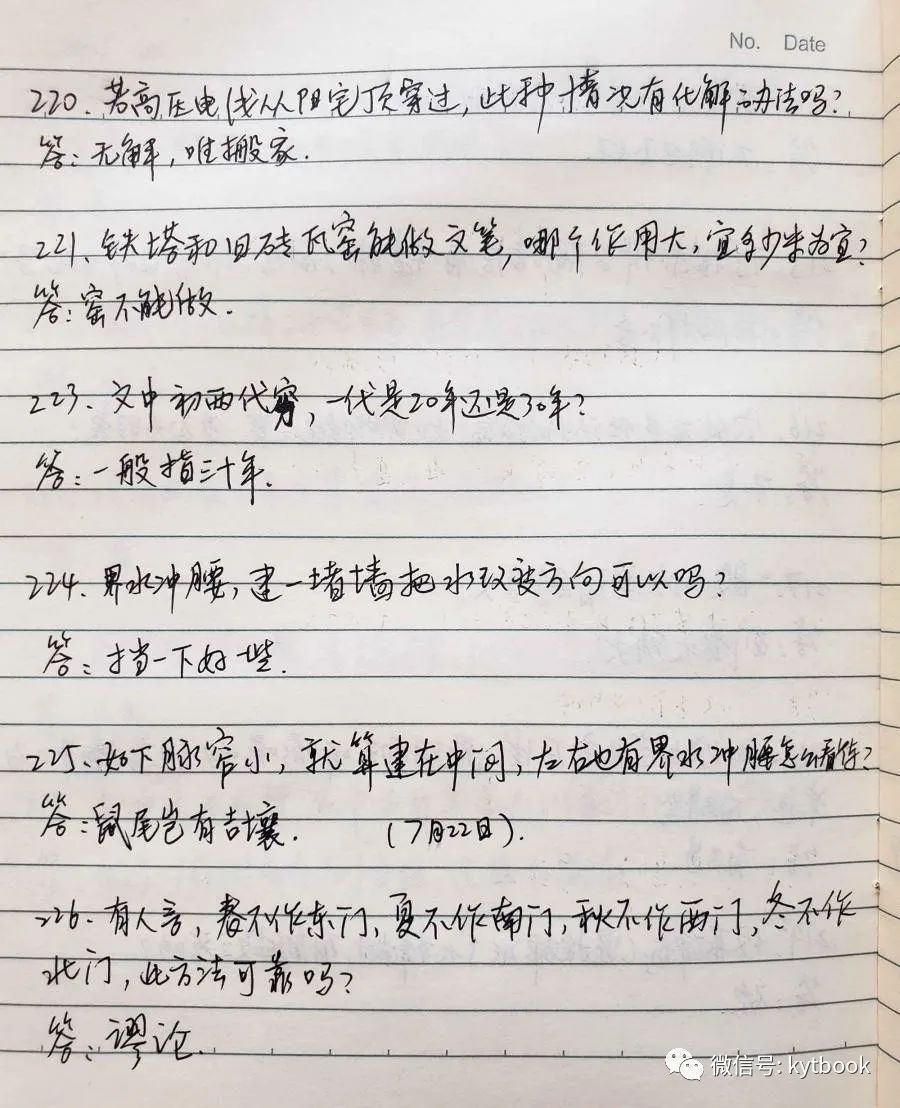 No. Date
220、若高压电线从阳宅顶穿过，此种情况有化解办法吗？
答：无解，唯搬家．
221、铁塔和旧砖瓦窑能做文笔，哪个作用大，宜多少米为宜？
答：窑不能做．
223、文中初两代穷，一代是20年还是30年？
答：一般指三十年．
224．界水冲腰，建一堵墙把水改被方向可以吗？
答：挡一下好些．
225、如下脉窄小，就算建在中间，左右也有界水冲腰怎么看待？
答：鼠尾岂有吉壤． （7月22日）．
226．有人言，春不作东门，夏不作南门，秋不作西门，冬不作
北门，此方法可靠吗？
答：谬论．
微信号: kytbook